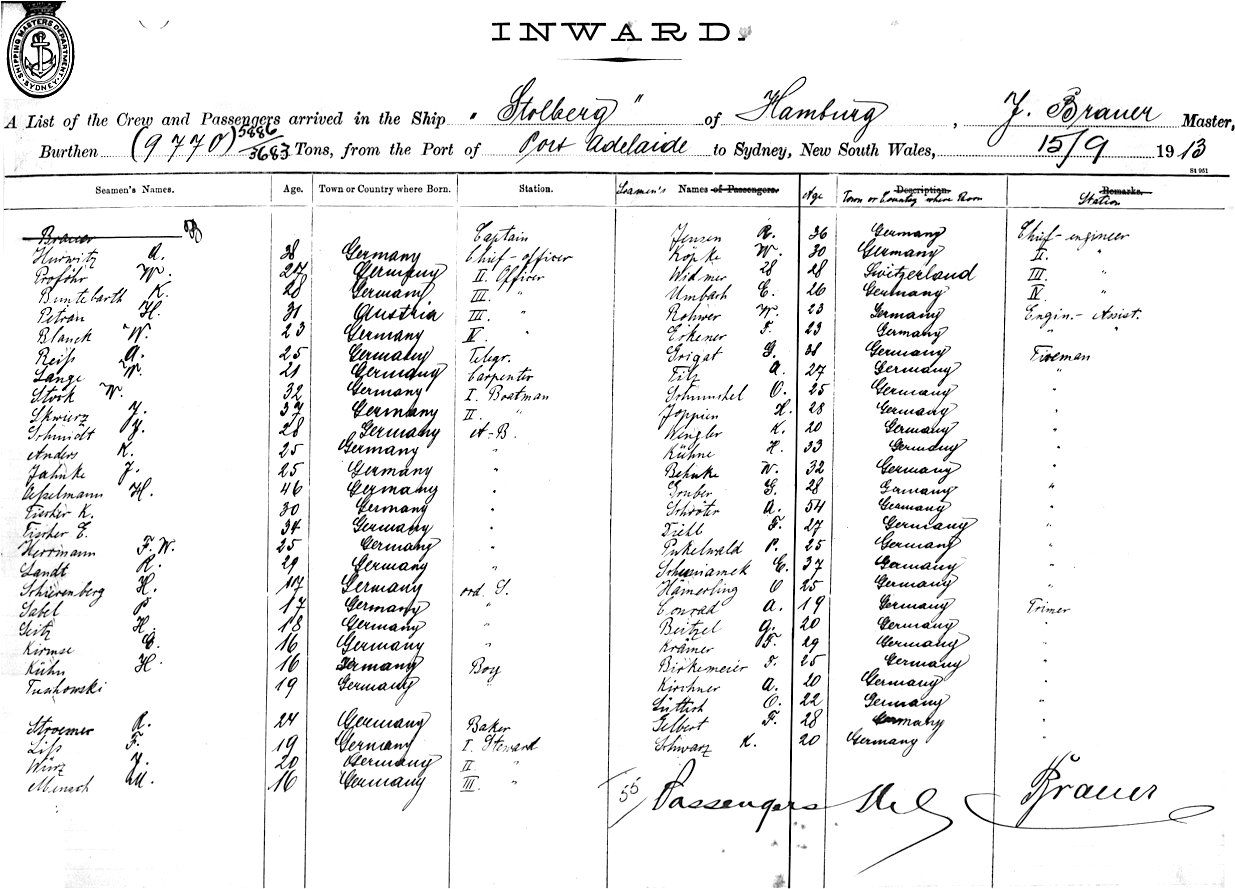 SHIPPING MASTERS DEPARTMENT SYDNEY
INWARD.
A List of the Crew and Passengers arrived in the Ship "Stolberg" of Hamburg, J. Brauer Master,
Burthen (9770) 5886/3683 Tons, from the Port of Port Adelaide to Sydney, New South Wales, 15/9 1913
S4 951
Seamen's Names. Age. Town or Country where Born. Station. Seamen's Names of Passengers. Age Description. Remarks.
Town or Country where Born Station
Brauer Captain Jensen R. 36 Germany Chief-engineer
Hurwitz A. 38 Germany Chief-officer Köpke W. 30 Germany II. "
Proföhr W. 27 Germany II. Officer Widmer 28 Switzerland III. "
Buntebarth K. 28 Germany III. " Umbach E. 26 Germany IV. "
Petran H. 31 Austria III. " Rohwer W. 23 Germany Engin.- Assist.
Blanck W. 23 Germany IV. Eikener F. 23 Germany " "
Reiß A. 25 Germany Telegr. Grigat G. 38 Germany Fireman
Lange W. 21 Germany Carpenter Filz A. 27 Germany "
Stork W. 32 Germany I. Boatman O. 25 Germany "
Skwierz J. 37 Germany II. " Joppien H. 28 Germany "
Schmidt J. 28 Germany A-B. Wengler K. 20 Germany "
Anders K. 25 Germany " Kühne H. 33 Germany "
Jahnke J. 25 Germany " Behnke W. 32 Germany "
Asselmann H. 46 Germany " Gruber G. 28 Germany "
Fischer K. 30 Germany " Schröter A. 54 Germany "
Fischer E. 34 Germany " F. 27 Germany "
Herrmann F. W. 25 Germany " Pukelwald P. 25 Germany "
Landt R. 29 Germany " E. 37 Germany "
Schierenberg H. 17 Germany ord. S. Hämerling O 25 Germany "
Sabel P 17 Germany " Conrad A. 19 Germany Trimer
Seitz H. 18 Germany " Beitzel G. 20 Germany "
Kirmse E. 16 Germany " Krämer F. 29 Germany "
Kühn H. 16 Germany Boy Birkemeier F. 25 Germany "
Tuschowski 19 Germany " Kirchner A. 20 Germany "
Lüttich O. 22 Germany "
Stroemer R. 24 Germany Baker Gelbert F. 28 Germany "
Liß F. 19 Germany I. Steward Schwarz K. 20 Germany "
Würz J. 20 Germany II "
Mensch M. 16 Germany III. "
55 Passengers Nil Brauer